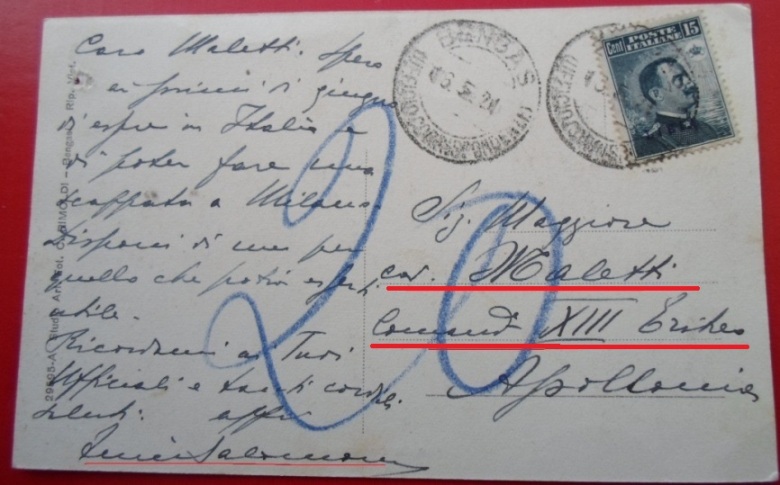 Caro Maletti. Spero
ai primi di giugno
di esser in Italia e
di poter fare una
scappata a Milano.
Disponi di me per
quello che potrò esserti
utile.
Ricordami ai Tuoi
Ufficiali e tanti cordiali
saluti. affmo
Salomone
BENGASI
15.5.2
UFFICIO CORRISPONDENZE
POSTE
ITALIANE
Cent 15
20
Sig. Maggiore
cav. Maletti
Comand XIII Eritreo
Apollonia